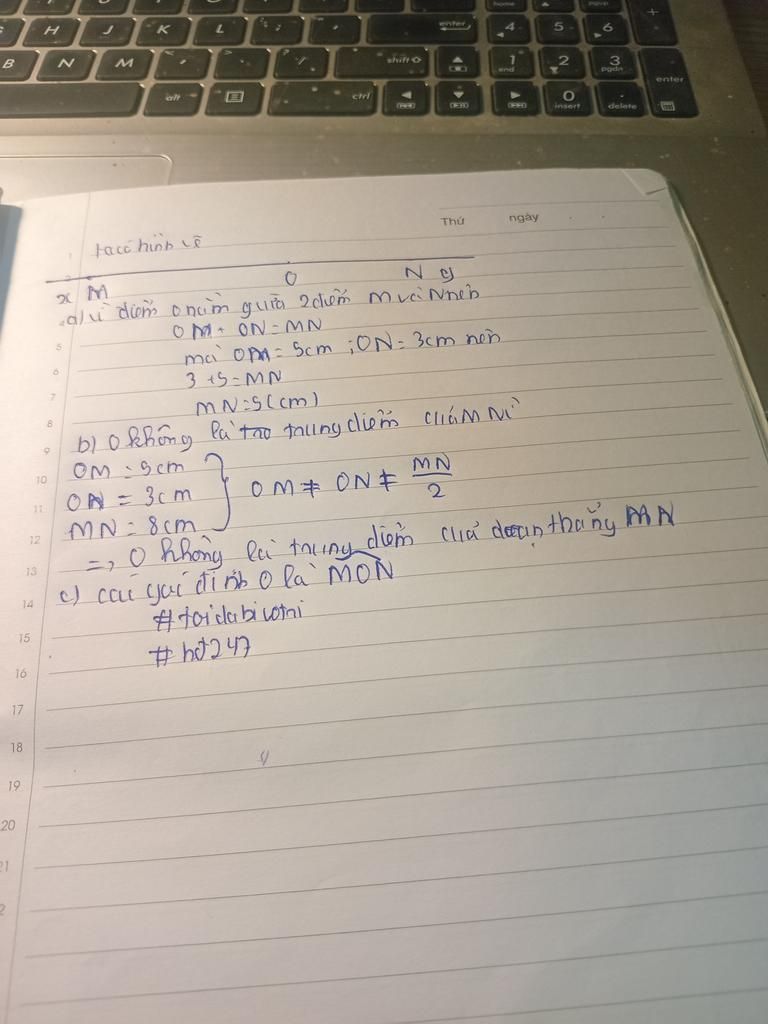 H J K L enter 4 5 6
B N M shift 1 end 2 3 pgdn enter
alt ctrl 0 insert delete
Thứ ngày
ta có hình vẽ
x M O N y
a) vì điểm O nằm giữa 2 điểm M và N nên
OM + ON = MN
mà OM = 5cm ; ON = 3cm nên
3 + 5 = MN
MN = 5(cm)
b) O không là trung điểm của MN vì
OM = 5cm
ON = 3cm
MN = 8cm
OM ≠ ON ≠ MN/2
=> O không là trung điểm của đoạn thẳng MN
c) các góc đỉnh O là MON
#toidabicomi
#hd247
5
6
7
8
9
10
11
12
13
14
15
16
17
18
19
20
21